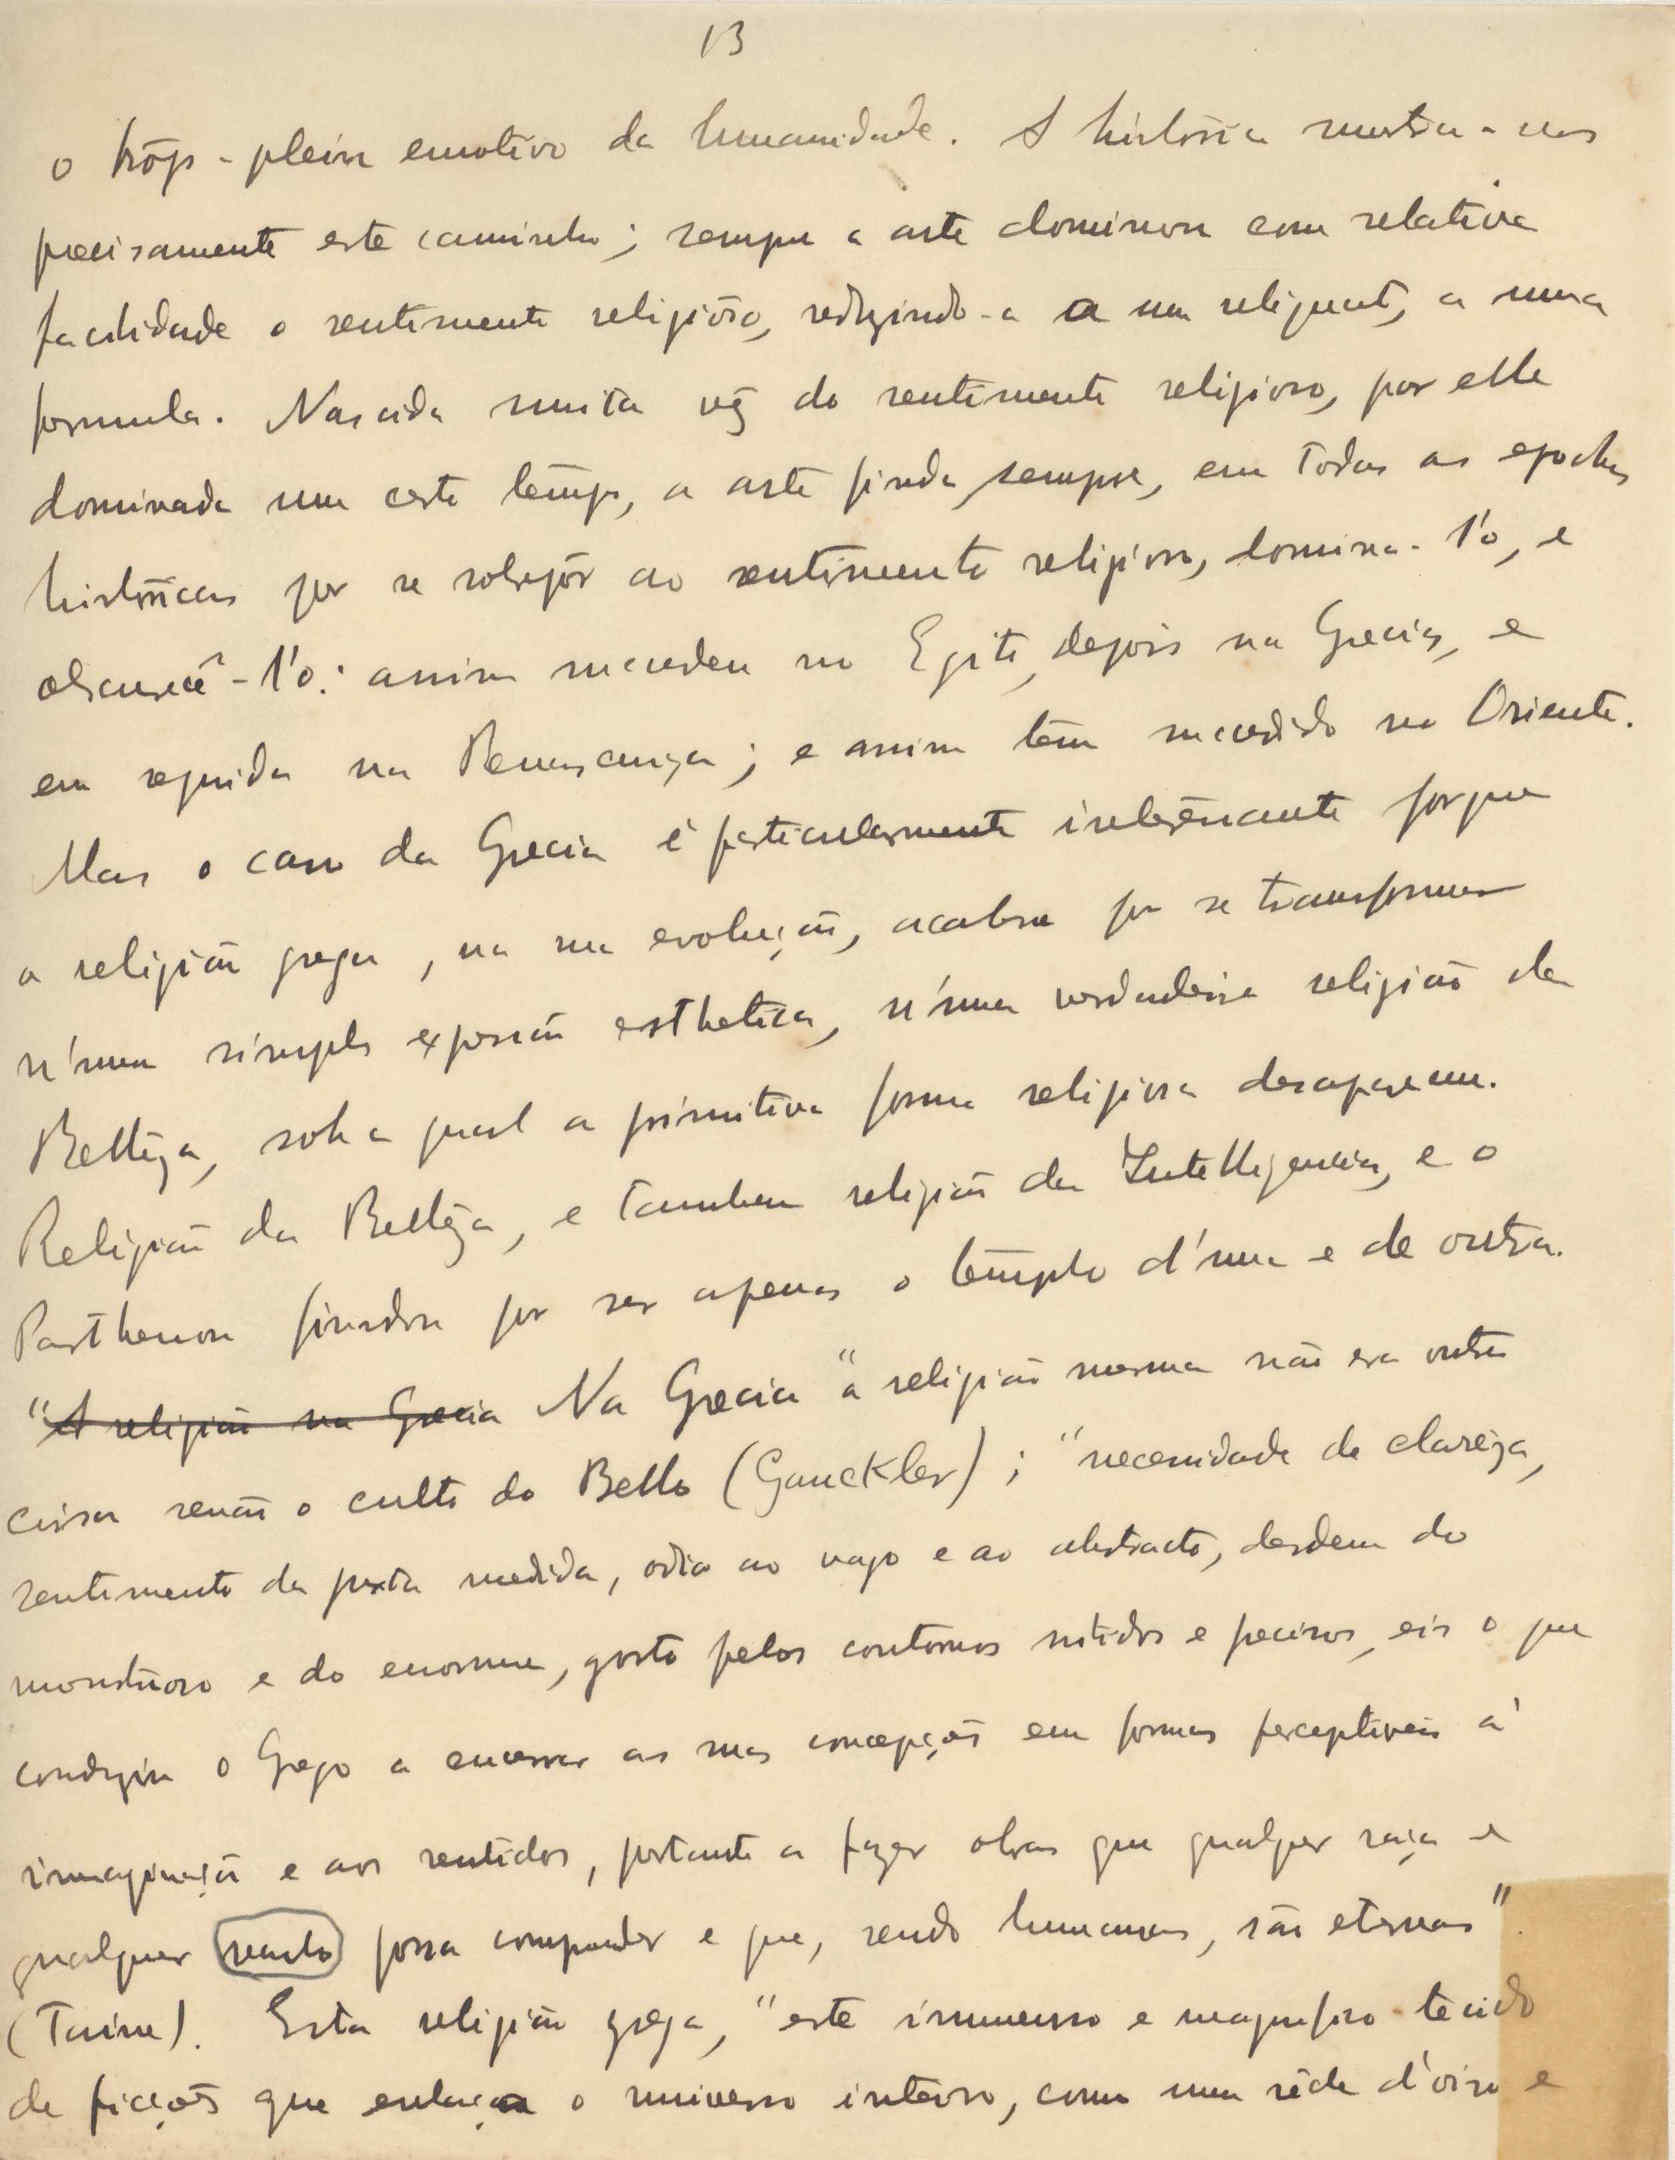 13
o trop-plein emotivo da humanidade. A história mostra-nos
precisamente este caminho; sempre a arte dominou com relativa
facilidade o sentimento religiôso, reduzindo-o a um reliquat, a uma
formula. Nascida muita vêz do sentimento religioso, por elle
dominada um certo têmpo, a arte finda, sempre, em todas as epochas
históricas por se sobrepôr ao sentimento religioso, domina-l'o, e
obscurecê-l'o: assim succedeu no Egito, depois na Grecia, e
em seguida na Renascença; e assim têm succedido no Oriente.
Mas o caso da Grecia é particularmente interêssante porque
a religião grega, na sua evolução, acabou por se transformar
n'uma simples exposição esthetica, n'uma verdadeira religião da
Bellêza, sob a qual a primitiva forma religiosa desapareceu.
Religião da Bellêza, e tambem religião da Intelligencia, e o
Parthenon findou por ser apenas o têmplo d'uma e de outra.
"A religião na Grecia Na Grecia "a religião mesma não era outra
coisa senão o culto do Bello (Gauckler); "necessidade de clarêza,
sentimento da justa medida, odio ao vago e ao abstracto, desdem do
monstruoso e do enorme, gosto pelos contornos nitidos e precisos, eis o que
conduziu o Grego a encerrar as suas concepções em formas perceptiveis á
imaginação e aos sentidos, portanto a fazer obras que qualquer raça e
qualquer seculo possa comprender e que, sendo humanas, são eternas".
(Taine). Esta religião grega, "este immenso e magnifico tecido
de ficções que enlaça o universo inteiro, como uma rêde d'oiro e